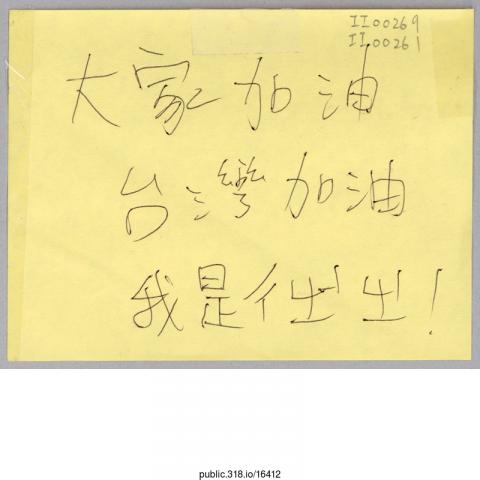 II00269
II00261
大家加油
台灣加油
我是
public.318.io/16412